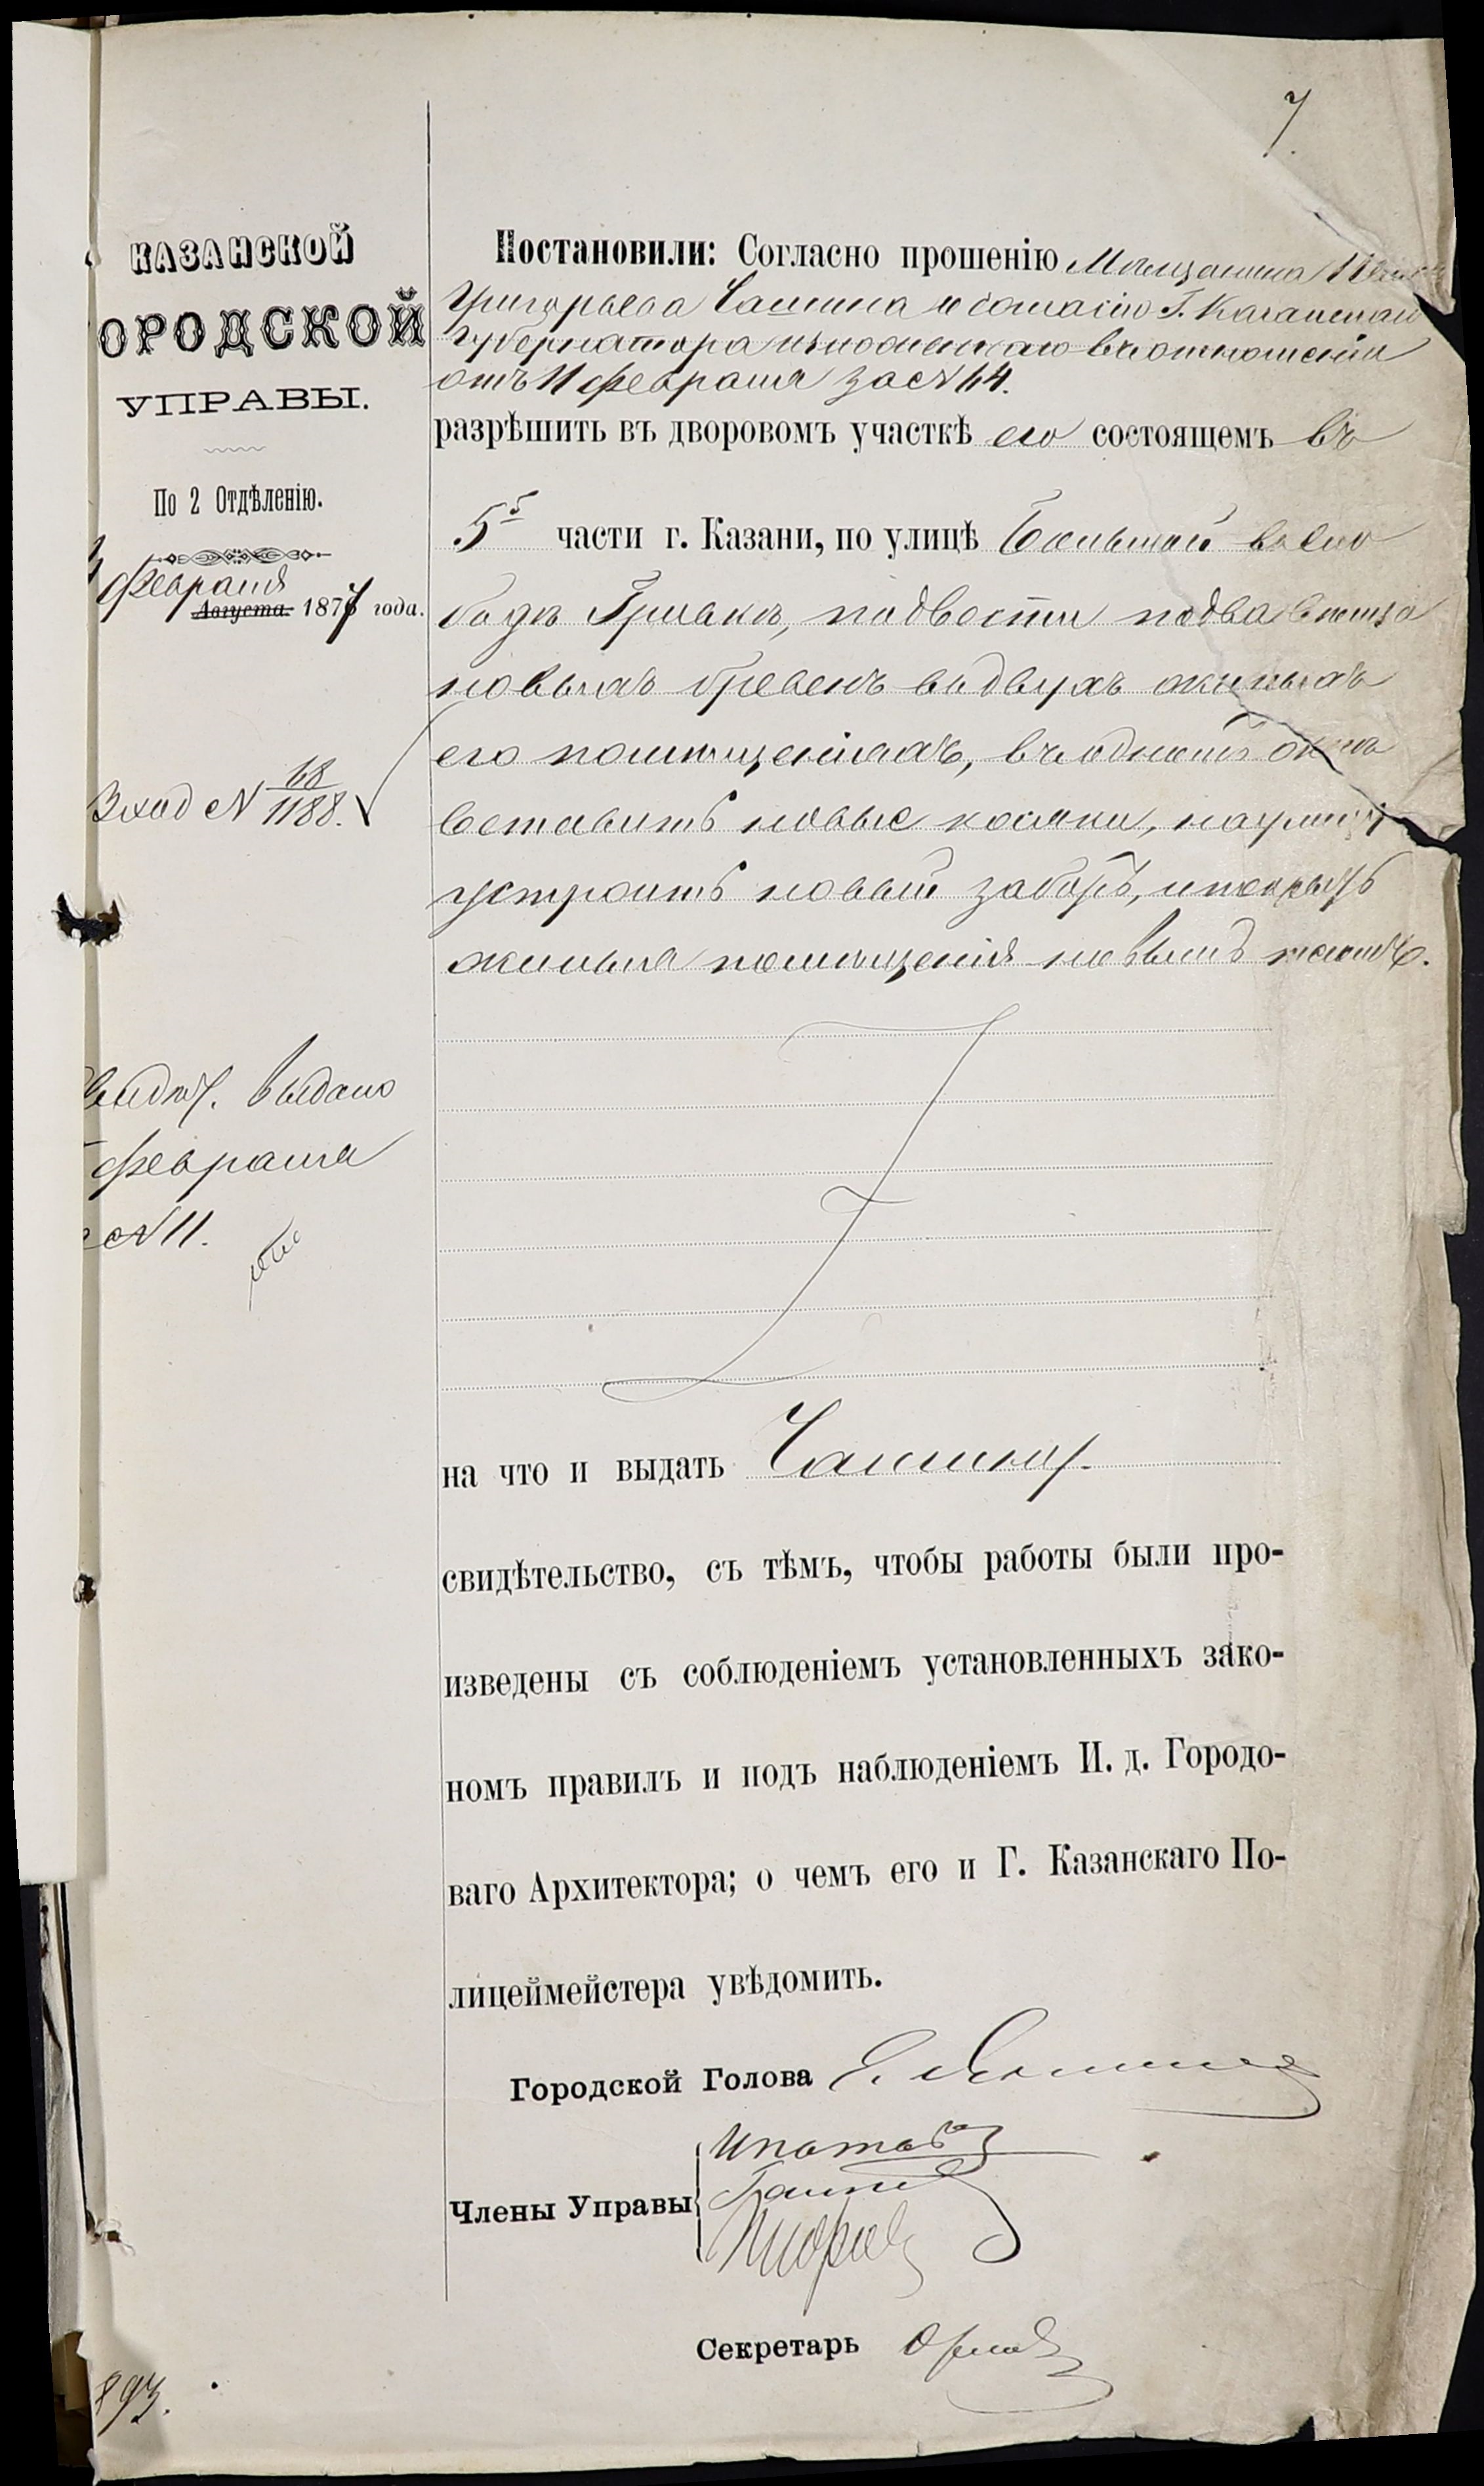 7.
КАЗАНСКОЙ
ОРОДСКОЙ
УПРАВЫ.
По 2 Отдѣленію.
Февраля
Августа 1877 года.
Вход N 68/1188.
выдано
Февраля
N 11.
893.
Постановили: Согласно прошенію Мѣщанина
Григорьева Чашина и согласію Г. Казанскаго
Губернатора изложеннаго въ отношеніи
отъ 11 Февраля за N 44.
разрѣшить въ дворовомъ участкѣ его состоящемъ въ
5й части г. Казани, по улицѣ Большой въ сло
бодѣ подвести подва венца
новыхъ бревенъ въ двухъ жилыхъ
его помѣщеніяхъ, въ одномъ окнѣ
вставить новые косяки, на улицу
устроить новый заборъ, и покрыть
жилыя помѣщенія новымъ тесомъ.
на что и выдать Чашину.
свидѣтельство, съ тѣмъ, чтобы работы были про-
изведены съ соблюденіемъ установленныхъ зако-
номъ правилъ и подъ наблюденіемъ И. д. Городо-
ваго Архитектора; о чемъ его и Г. Казанскаго По-
лицеймейстера увѣдомить.
Городской Голова
Члены Управы
Ипатовъ
Секретарь Орловъ